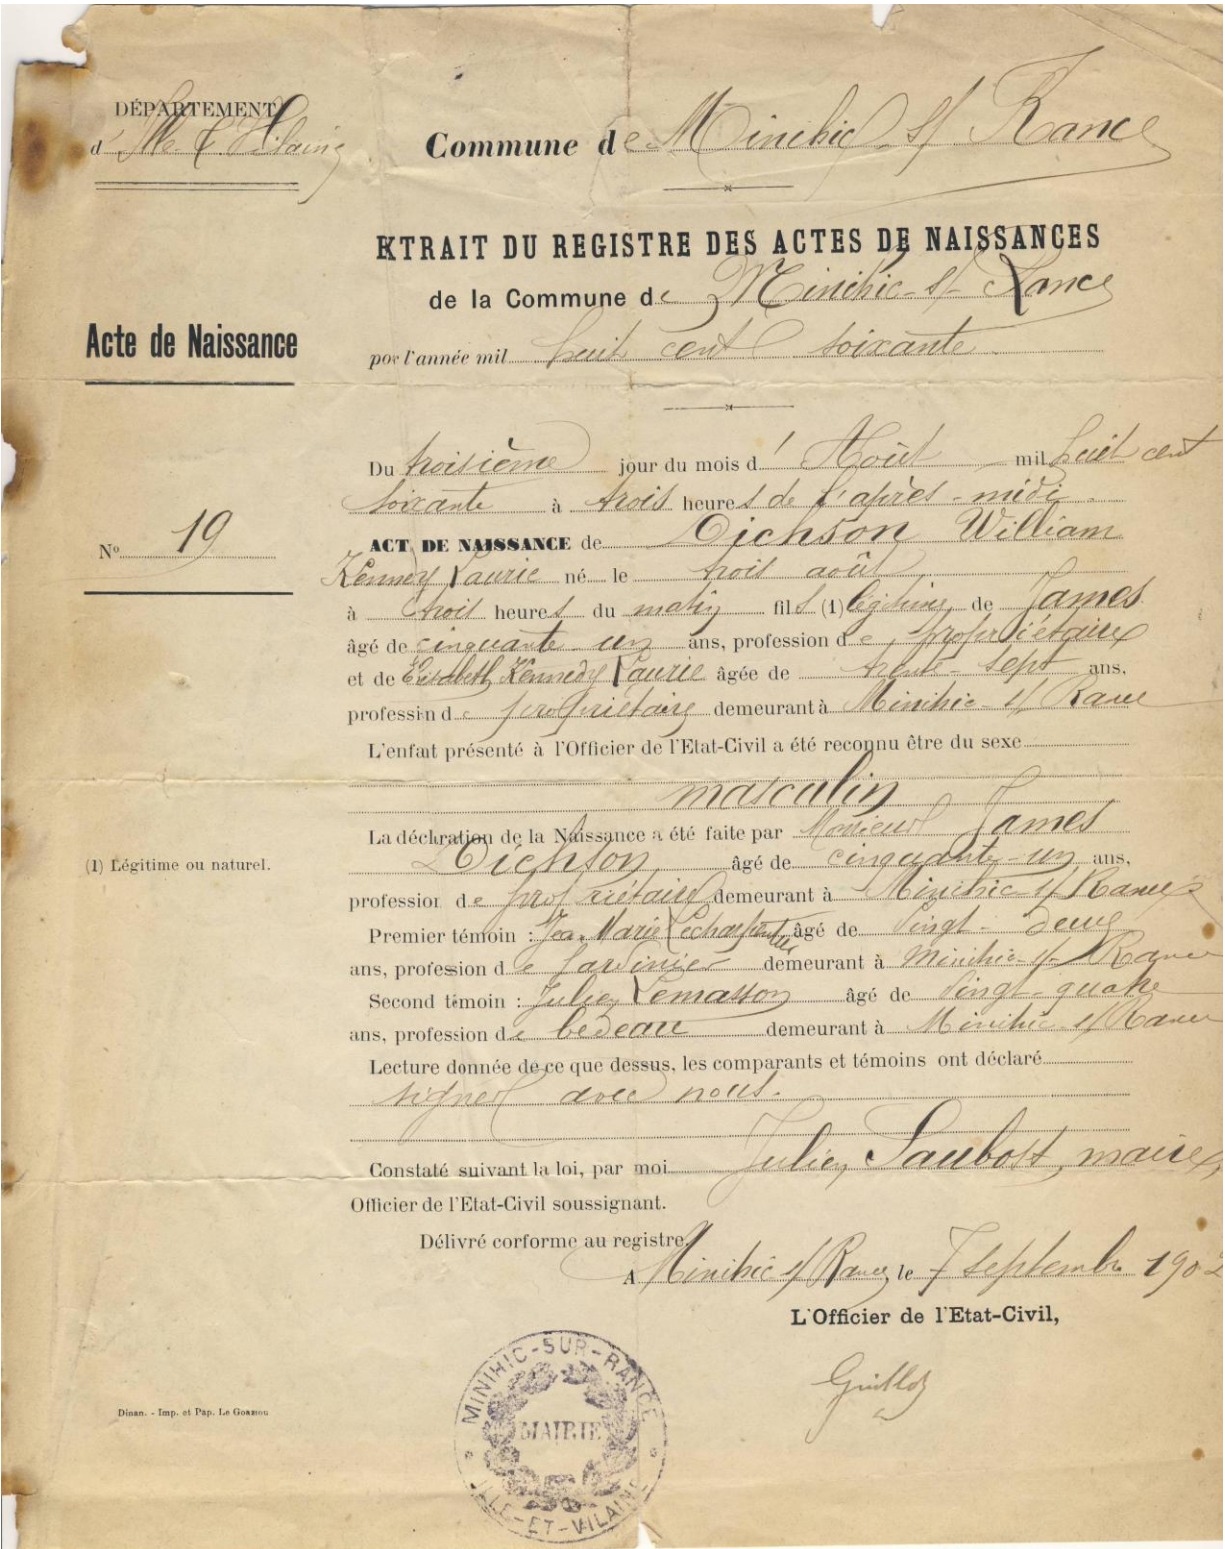 DÉPARTEMENT
d'Ille & Vilaine
Commune de Minihic s/ Rance
EXTRAIT DU REGISTRE DES ACTES DE NAISSANCES
de la Commune de Minihic-s/-Rance
Acte de Naissance
por l'année mil huit cent soixante
Du troisième jour du mois d'Août mil huit cent
soixante à trois heures de l'après-midi
No 19
ACT DE NAISSANCE de Dickson William
Kennedy Laurie né le trois août
à trois heures du matin fils (1) légitime de James
âgé de cinquante-un ans, profession de propriétaire
et de Elisabeth Kennedy Laurie âgée de trente-sept ans,
professin de propriétaire demeurant à Minihic-s/ Rance
L'enfait présenté à l'Officier de l'Etat-Civil a été reconnu être du sexe
masculin
La déclration de la Naissance a été faite par Monsieur James
Dickson, âgé de cinquante-un ans,
(1) Légitime ou naturel.
profession de propriétaire demeurant à Minihic-s/ Rance
Premier témoin : Jean Marie Lecharpentier âgé de vingt-deux
ans, profession de jardinier demeurant à Minihic-s/-Rance
Second témoin : Julien Lemasson âgé de vingt-quatre
ans, profession de bedeau demeurant à Minihic-s/ Rance
Lecture donnée de ce que dessus, les comparants et témoins ont déclaré
signer avec nous.
Constaté suivant la loi, par moi Julien Saubost, maire,
Officier de l'Etat-Civil soussignant.
Délivré corforme au registre.
A Minihic s/ Rance, le 7 septembre 1902
L'Officier de l'Etat-Civil,
MINIHIC-SUR-RANCE
MAIRIE
ILLE-ET-VILAINE
Dinan. - Imp. et Pap. Le Goaziou